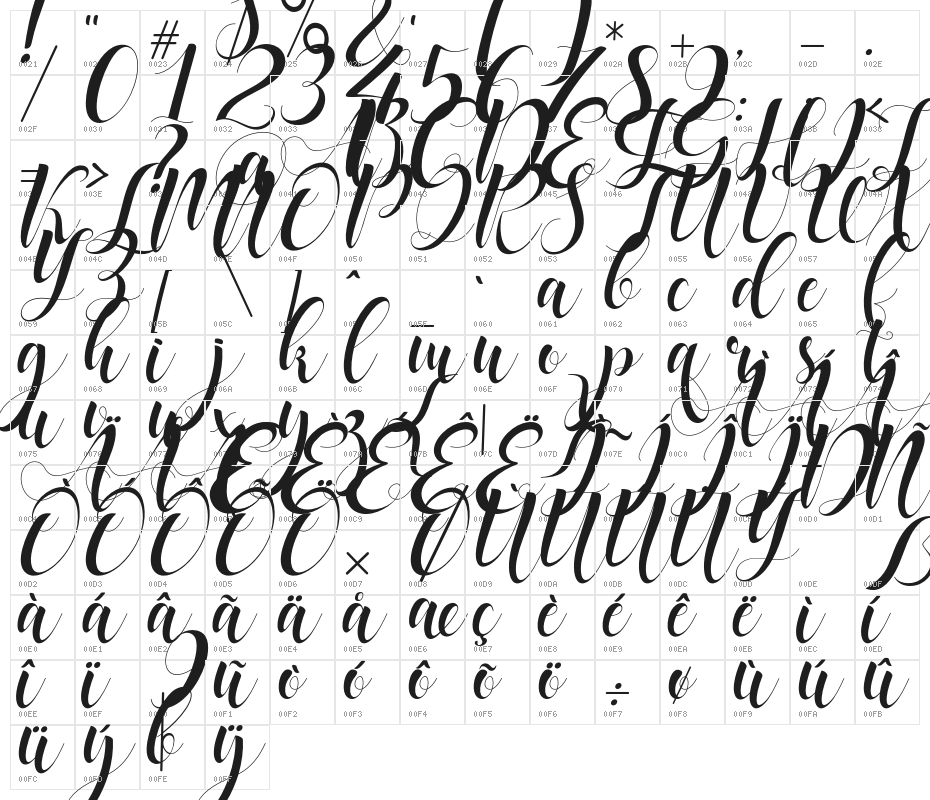 ! " # $ % & ' ( ) * + , - .
0021 0022 0023 0024 0025 0026 0027 0028 0029 002A 002B 002C 002D 002E
/ 0 1 2 3 4 5 6 7 8 9 : ; <
002F 0030 0031 0032 0033 0034 0035 0036 0037 0038 0039 003A 003B 003C
= > ? @ A B C D E F G H I J
003D 003E 003F 0040 0041 0042 0043 0044 0045 0046 0047 0048 0049 004A
K L M N O P Q R S T U V W X
004B 004C 004D 004E 004F 0050 0051 0052 0053 0054 0055 0056 0057 0058
Y Z [ \ ] ^ _ ` a b c d e f
0059 005A 005B 005C 005D 005E 005F 0060 0061 0062 0063 0064 0065 0066
g h i j k l m n o p q r s t
0067 0068 0069 006A 006B 006C 006D 006E 006F 0070 0071 0072 0073 0074
u v w x y z { | } ~ À Á Â Ã
0075 0076 0077 0078 0079 007A 007B 007C 007D 007E 00C0 00C1 00C2 00C3
Ä Å Æ Ç È É Ê Ë Ì Í Î Ï Ð Ñ
00C4 00C5 00C6 00C7 00C8 00C9 00CA 00CB 00CC 00CD 00CE 00CF 00D0 00D1
Ò Ó Ô Õ Ö × Ø Ù Ú Û Ü Ý Þ ß
00D2 00D3 00D4 00D5 00D6 00D7 00D8 00D9 00DA 00DB 00DC 00DD 00DE 00DF
à á â ã ä å æ ç è é ê ë ì í
00E0 00E1 00E2 00E3 00E4 00E5 00E6 00E7 00E8 00E9 00EA 00EB 00EC 00ED
î ï ð ñ ò ó ô õ ö ÷ ø ù ú û
00EE 00EF 00F0 00F1 00F2 00F3 00F4 00F5 00F6 00F7 00F8 00F9 00FA 00FB
ü ý þ ÿ
00FC 00FD 00FE 00FF